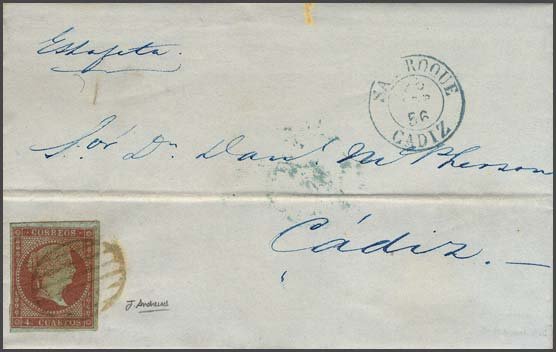 Estafeta.
SAN ROQUE
56
CADIZ
Sor. Dn. Danl. McPherson
Cádiz.—
CORREOS
4. CUARTOS
J. Andrews